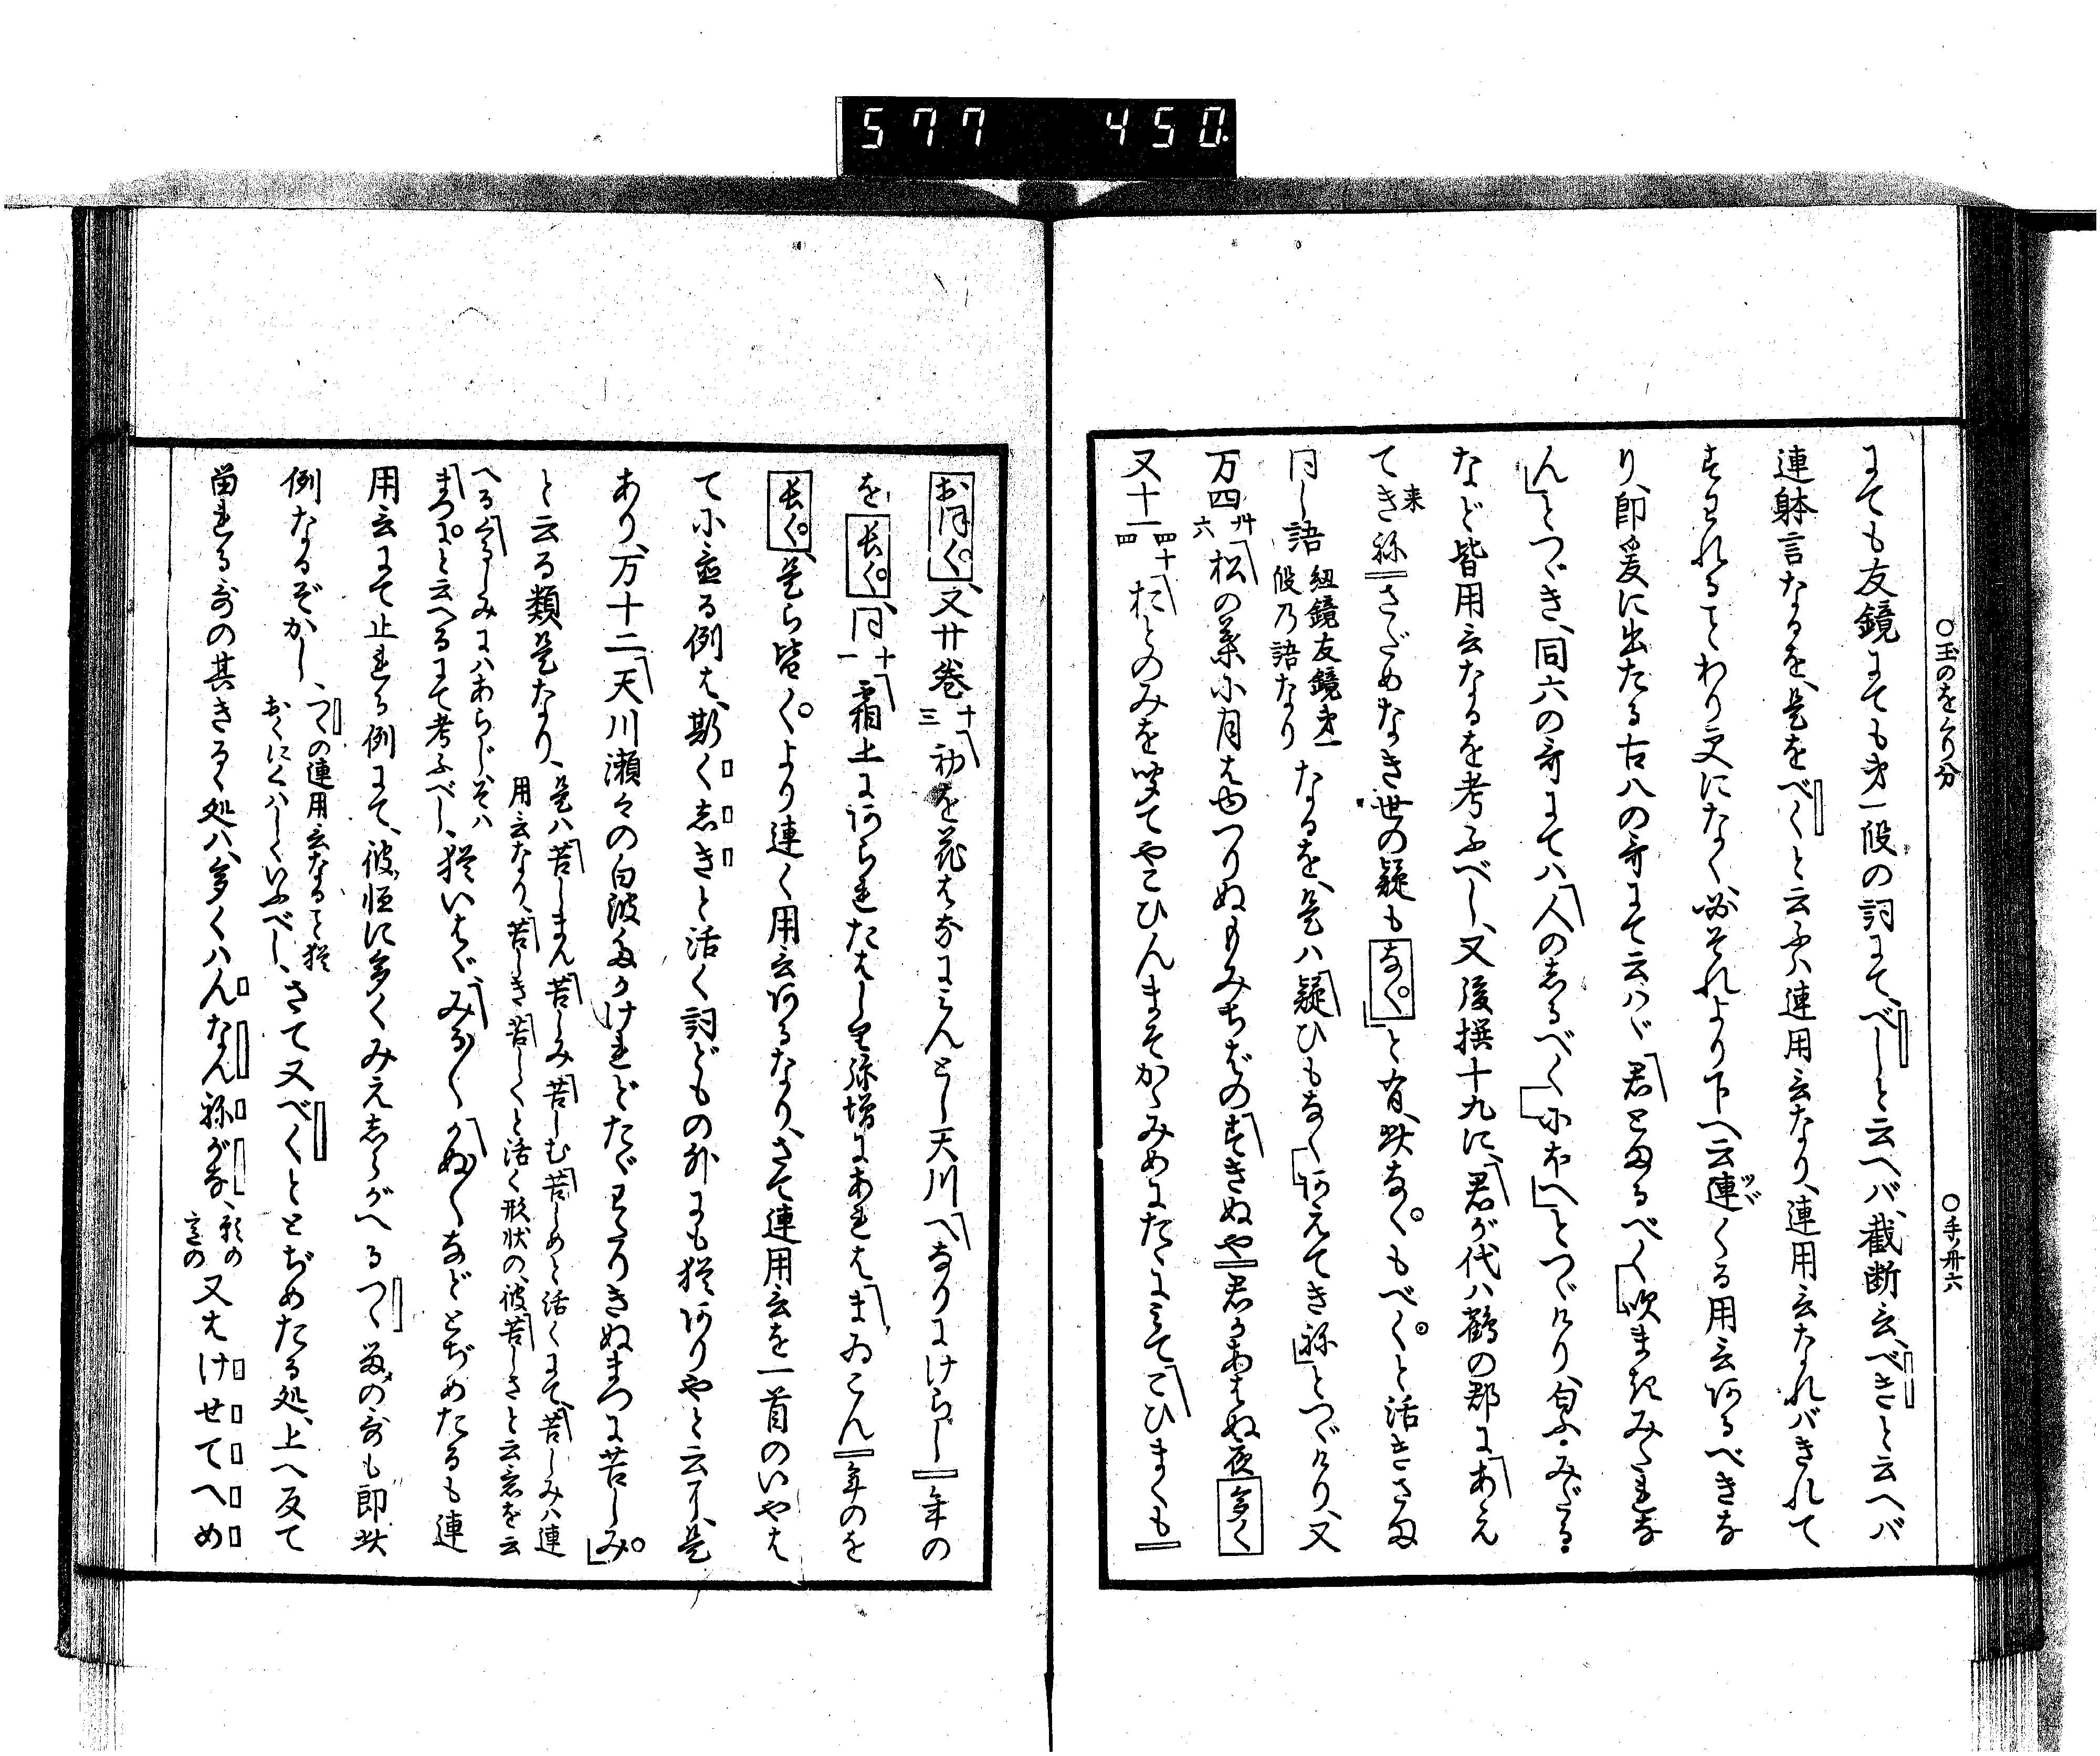 577 450
○玉のをくり分 ○手ノ卅六
にても友鏡にても第一段の詞にて、べしと云ヘバ、截断言、べきと云ヘバ
連躰言なるを、是をべくと云ふハ連用言なり、連用言なれバきれて
すわれることわり更になく必それより下ヘ云連くる用言あるべきな
り、即爰に出たる古八の哥にて云ハヾ君とまるべく吹まきみだれな
んとつゞき、同六の哥にてハ人のしるべくにほへとつゞけり、匂ふみだる
など皆用言なるを考ふべし、又後撰十九に、君が代ハ鶴の郡にあえ
てき来ねさだめなき世の疑もなくと有、此なくもべくと活きさま
同じ語紐鏡友鏡第一段乃語なりなるを、是ハ疑ひもなくあえてきねとつゞけり、又
万四卅六松の葉に月はゆつりぬもみちばのすぎぬや君があはぬ夜多く
又十一四十四杉とのみを嘆てやこひんまそかゞみめにたゞにみてこひまくも
おほく、又廿巻十三初を花はなにみんとし天川へなりにけらし年の
を長く、同十一霜上にあられたばしりいや増にあれはまゐこん年のを
長く、是ら皆くより連く用言あるなり、さて連用言を一首のいやは
てに置る例は、斯くしきと活く詞どもの外にも猶ありやと云に、是
あり、万十二天川瀬々の白波たかけれどたゞわたりきぬまつに苦しみ
と云る類是なり、是ハ苦しまん苦しみ苦しむ苦しめと活くにて、苦しみハ連用言なり、苦しき苦しくと活く形状の、彼苦しさと云意を云
へるくるしみにハあらじ、そハまつにと云へるにて考ふべし、猶いはゞ、みなくかぬくなどとぢめたるも連
用言にて止まる例にて、彼恒に多くみえしらがへるつゝ留の哥も即此
例なるぞかし、つゝの連用言なること猶おくにくハしくいふべし、さて又べくととぢめたる処、上へ反て
留まる哥の其きるゝ処ハ、多くハんなんねがな、願の意の又はけせてへめ